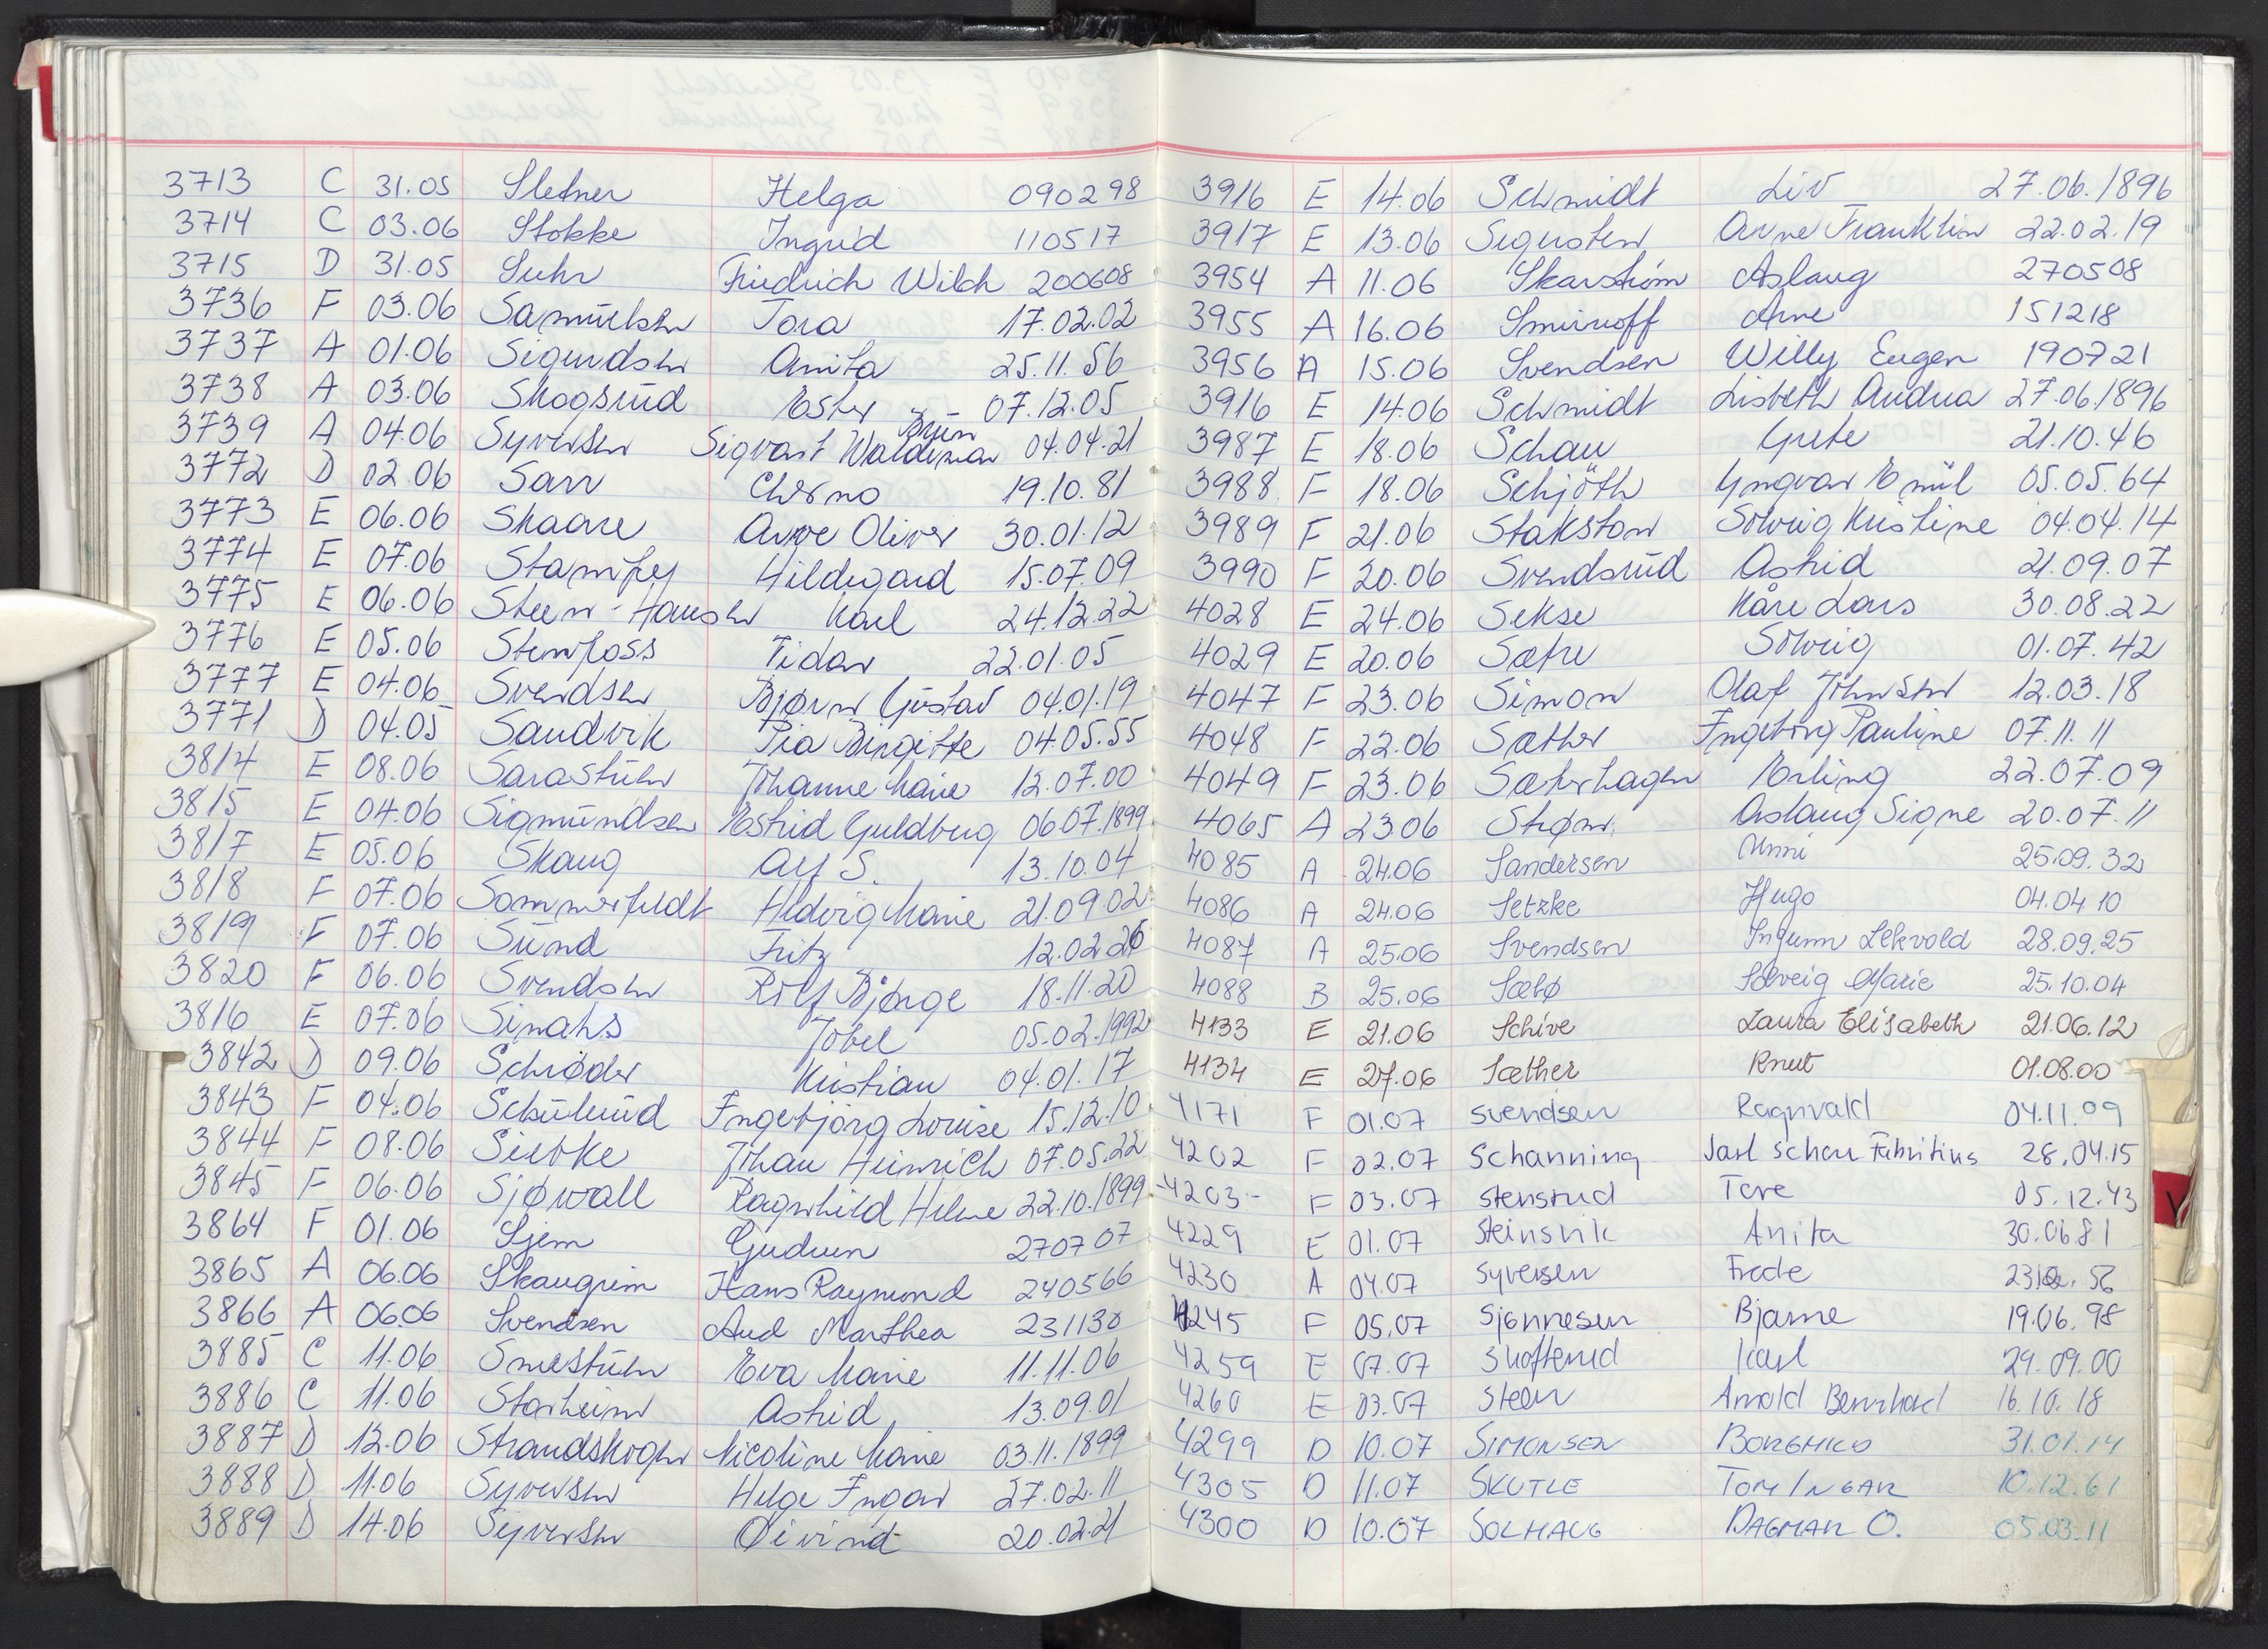 3713 C 31.05 Sletner Helga 090298
3714 C 03.06 Stokke Ingrid 110517
3715 D 31.05 Suhr Friedrich Wilch 200608
3736 F 03.06 Samuelsen Tora 17.02.02
3737 A 01.06 Sigurdsen Anita 25.11.56
3738 A 03.06 Skogsrud Ester 07.12.05
3739 A 04.06 Syversen Sigvart Waldemar Bruun 04.04.21
3772 D 02.06 Sarr Cherno 19.10.81
3773 E 06.06 Skaare Arve Oliver 30.01.12
3774 E 07.06 Stampey Hildegard 15.07.09
3775 E 06.06 Steen-Hansen Karl 24.12.22
3776 E 05.06 Stenfoss Fidar 22.01.05
3777 E 04.06 Svendsen Bjørn Gustav 04.01.19
3771 D 04.05 Sandvik Pia Birgitte 04.05.55
3814 E 08.06 Sarastuen Johanne Marie 12.07.00
3815 E 04.06 Sigmundsen Estrid Guldberg 06.07.1899
3817 E 05.06 Skaug Alf S. 13.10.04
3818 F 07.06 Sommerfeldt Hedvig Marie 21.09.02
3819 F 07.06 Sund Fritz 12.02.26
3820 F 06.06 Svendsen Rolf Bjørge 18.11.20
3816 E 07.06 Simahs Jobel 05.02.1992
3842 D 09.06 Schrøder Kristian 04.01.17
3843 F 04.06 Schulerud Ingebjørg Louise 15.12.10
3844 F 08.06 Siebke Johan Heinrich 07.05.22
3845 F 06.06 Sjøwall Ragnhild Helene 22.10.1899
3864 F 01.06 Sjem Gudrun 270707
3865 A 06.06 Skaugrim Hans Raymond 240566
3866 A 06.06 Svendsen Aud Marthea 231130
3885 C 11.06 Smestuen Eva Marie 11.11.06
3886 C 11.06 Starheim Astrid 13.09.01
3887 D 12.06 Strandskogen Nicoline Marie 03.11.1899
3888 D 11.06 Syversen Helge Ingar 27.02.11
3889 D 14.06 Syversen Øivind 20.02.21
3916 E 14.06 Schmidt Liv 27.06.1896
3917 E 13.06 Sigersten Arne Franklin 22.02.19
3954 A 11.06 Skarstrøm Aslaug 270508
3955 A 16.06 Smirnoff Arne 151218
3956 A 15.06 Svendsen Willy Eugen 190721
3916 E 14.06 Schmidt Lisbeth Andrea 27.06.1896
3987 E 18.06 Schau Grete 21.10.46
3988 F 18.06 Schjöth Yngvar Emil 05.05.64
3989 F 21.06 Stakston Solveig Kristine 04.04.14
3990 F 20.06 Svendsrud Astrid 21.09.07
4028 E 24.06 Sekse Kåre Lars 30.08.22
4029 E 20.06 Sætre Solveig 01.07.42
4047 F 23.06 Simon Olaf Johnsen 12.03.18
4048 F 22.06 Sæther Ingeborg Pauline 07.11.11
4049 F 23.06 Sæterhagen Erling 22.07.09
4065 A 23.06 Strøm Aslaug Signe 20.07.11
4085 A 24.06 Sandersen Unni 25.09.32
4086 A 24.06 Setzke Hugo 04.04.10
4087 A 25.06 Svendsen Ingunn Lekvold 28.09.25
4088 B 25.06 Sæbø Solveig Marie 25.10.04
4133 E 21.06 Schive Laura Elisabeth 21.06.12
4134 E 27.06 Sæther Knut 01.08.00
4171 F 01.07 Svendsen Ragnvald 04.11.09
4202 F 02.07 Schanning Jarl Schou Fabritius 28.04.15
-4203- F 03.07 Stensrud Tore 05.12.43
4229 E 01.07 Steinsvik Anita 30.06.81
4230 A 04.07 Syversen Frede 56
4245 F 05.07 Sjønnesen Bjarne 19.06.98
4259 E 07.07 Skofterud Karl 29.09.00
4260 E 03.07 Steen Arnold Bernhard 16.10.18
4299 D 10.07 SIMONSEN BORGHILD 31.01.14
4305 D 11.07 SKUTLE TOM INGAR 10.12.61
4300 D 10.07 SOLHAUG DAGMAR O. 05.03.11